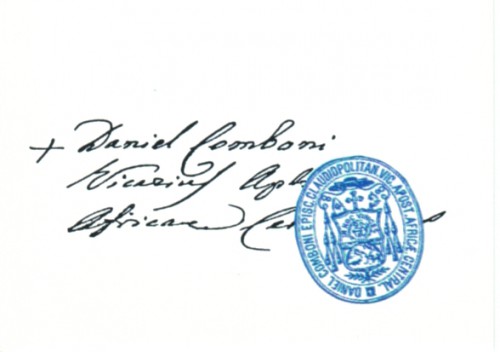 + Daniel Comboni
Vicarius Apl
Africae Ce s
DANIEL COMBONI EPISC. CLAUDIOPOLITAN. VIC. APOST. AFRICÆ CENTRAL.